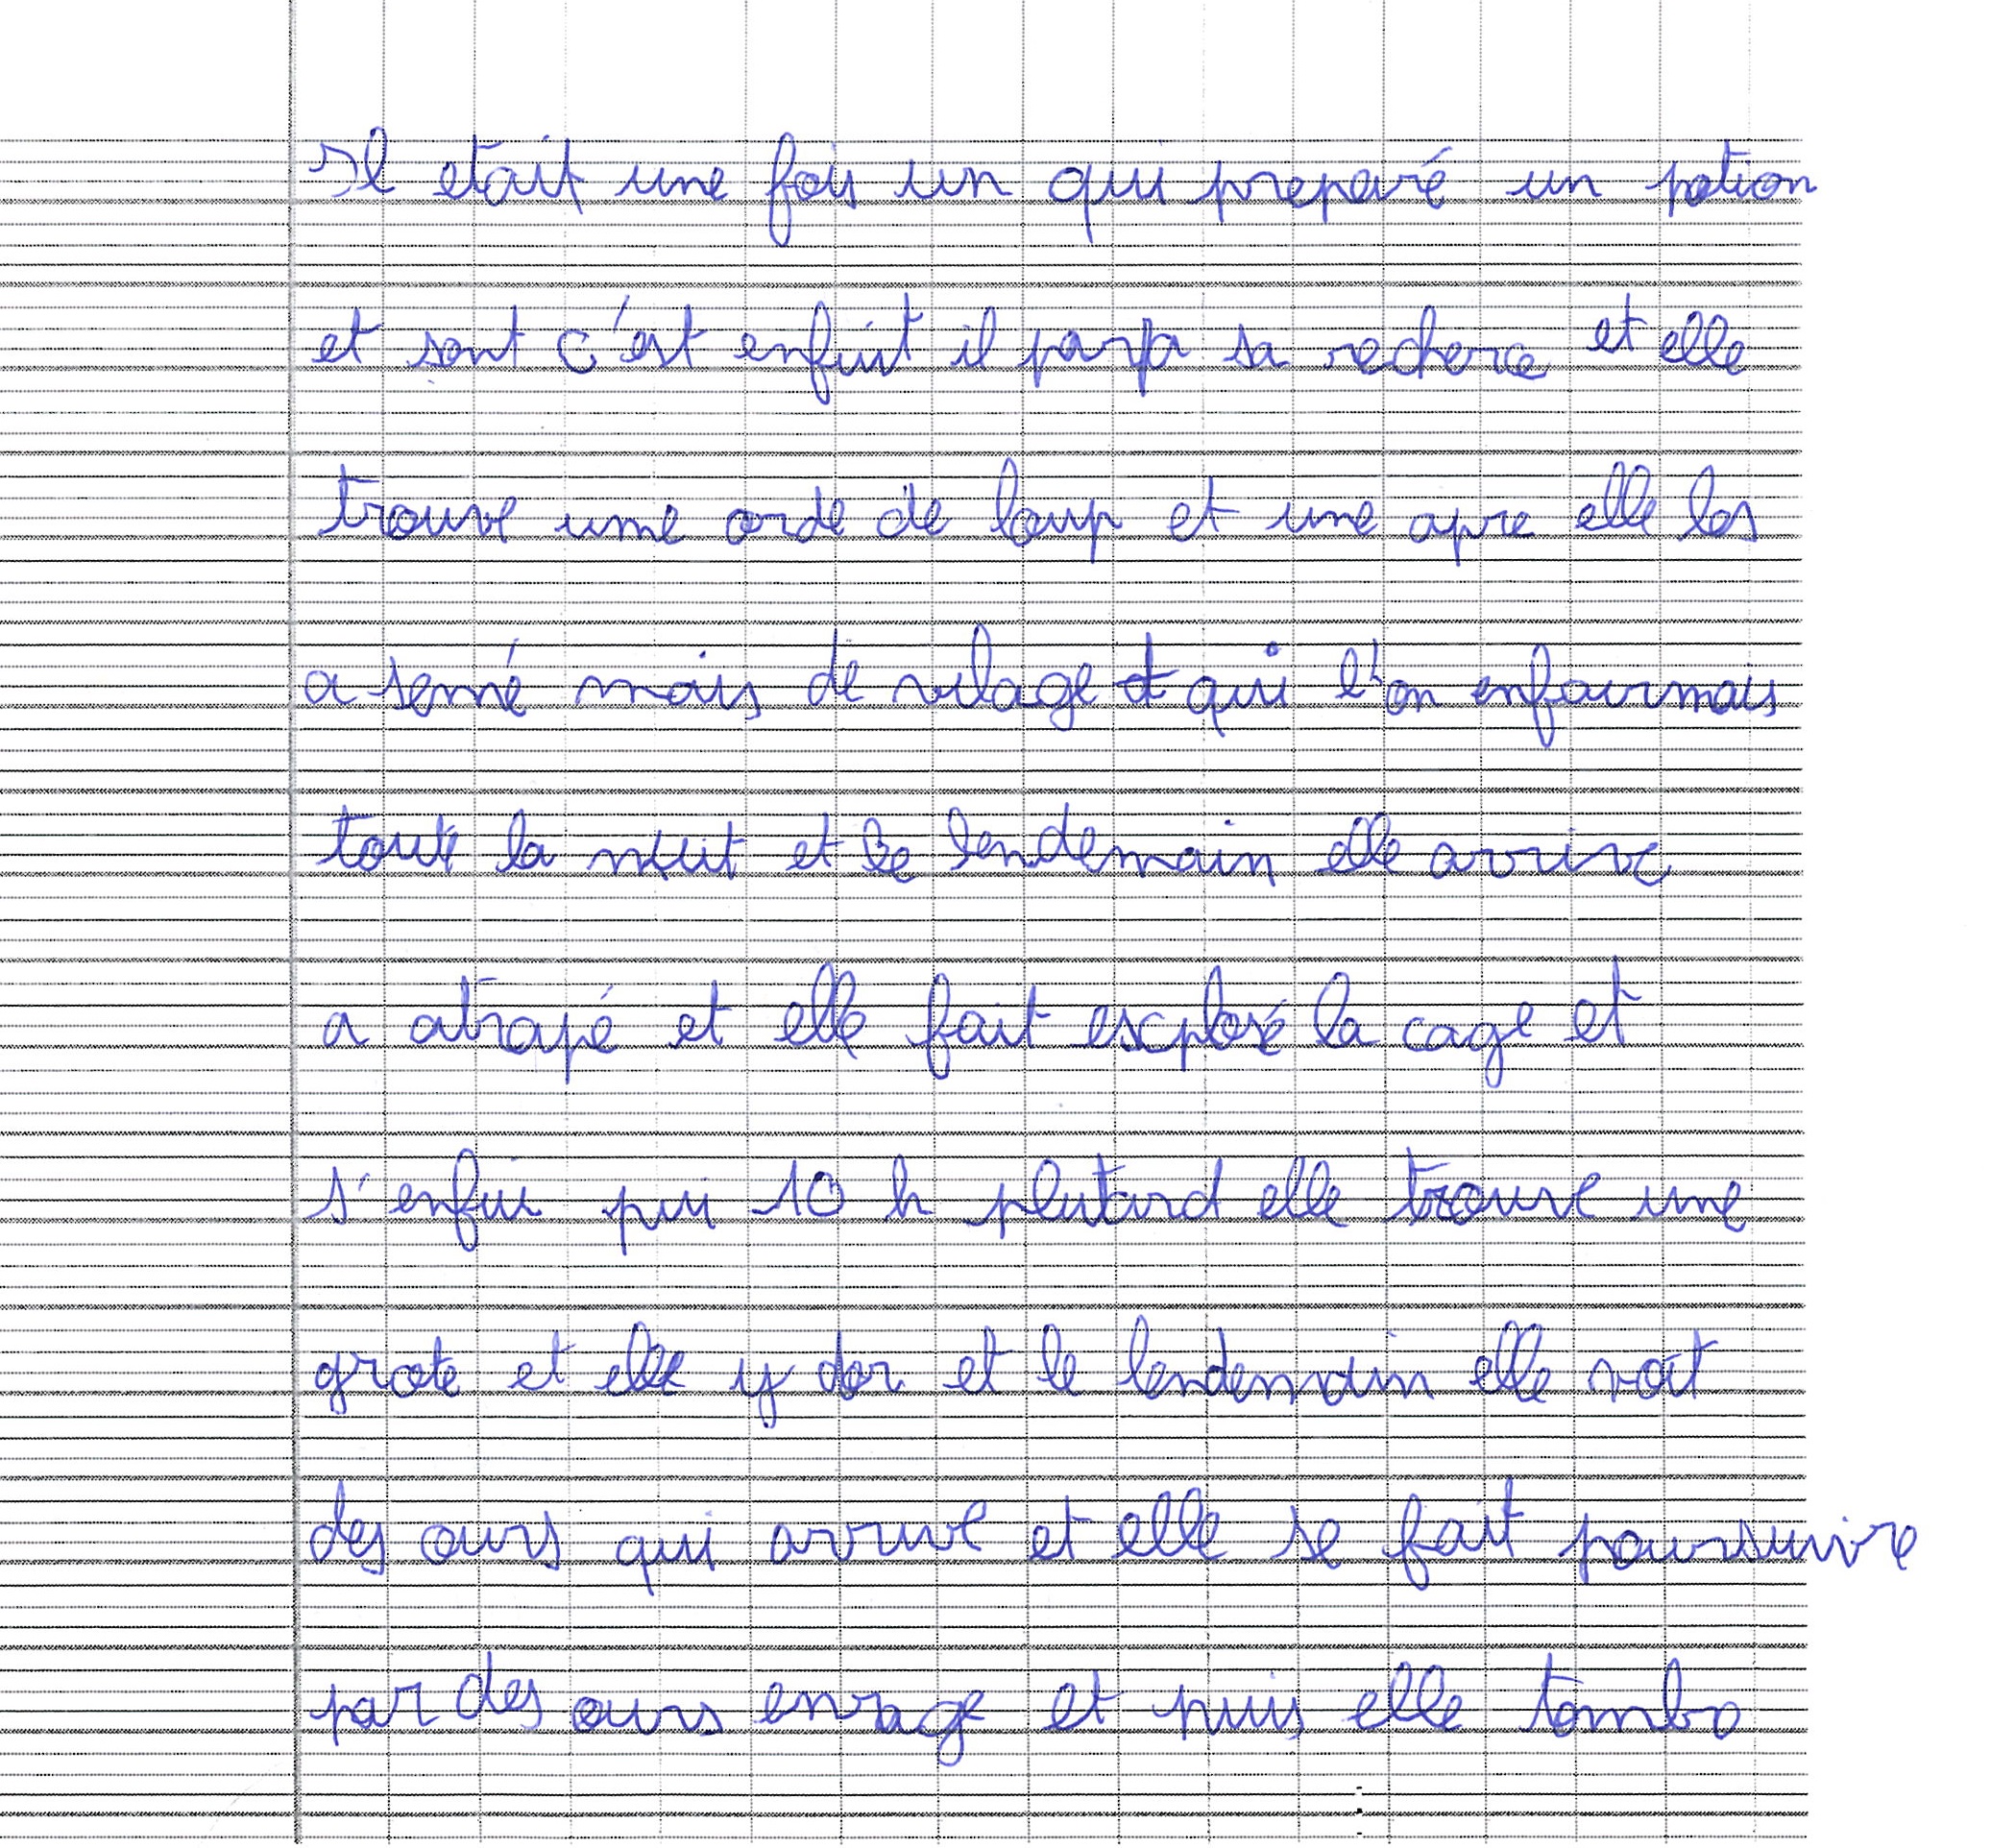 Il etait une fois un qui preparé un potion
et sont c'est enfuit il par sa recherce et elle
trouve une orde de loup et une apre elle les
a semé mais de vilage qui l'on enfourmais
toute la nuit et le lendemain elle arrive
a atrapé et elle fait esxplosé la cage et
s'enfui pui 10 h plutard elle trouve une
grote et elle y dor et le lendemain elle voit
des ours qui arrive et elle se fait poursuivre
par des ours enrage et puis elle tomba